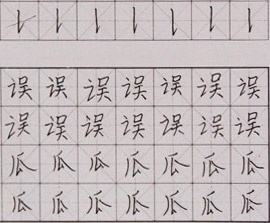 误误误误误误误
误误误误误误误
瓜瓜瓜瓜瓜瓜瓜
瓜瓜瓜瓜瓜瓜瓜